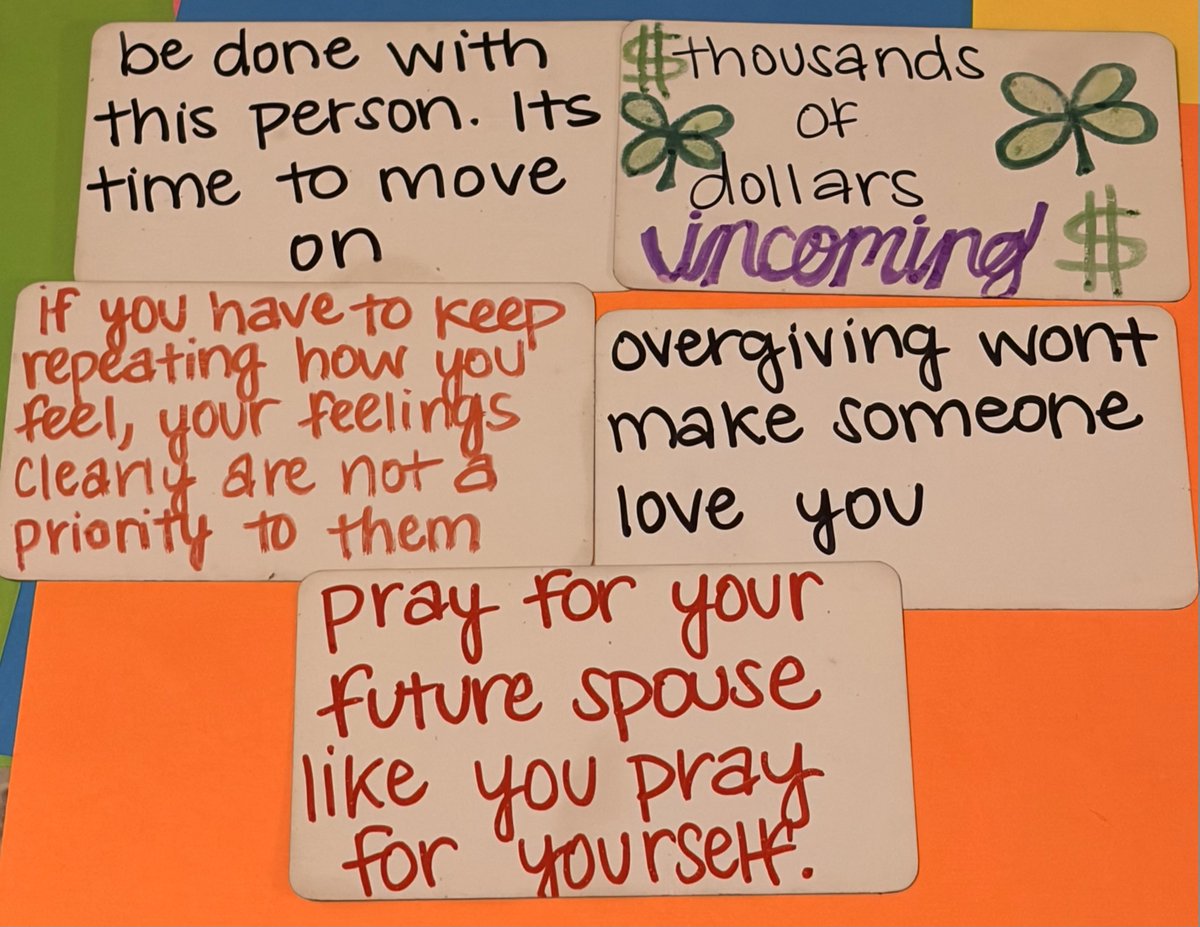 be done with
this person. Its
time to move
on
$thousands
of
dollars
incoming $
if you have to keep
repeating how you
feel, your feelings
clearly are not a
priority to them
overgiving wont
make someone
love you
pray for your
future spouse
like you pray
for yourself.